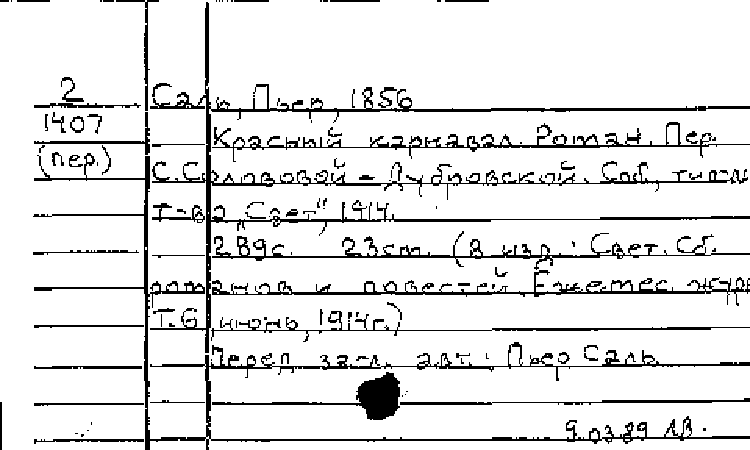 2
1407
(пер.)
Саль, Пьер, 1856
Красный карнавал. Роман. Пер.
С. Солововой-Дубровской. Спб, тип-ия
т-ва "Свет", 1914.
289с. 23cm. (В изд.: Свет. Сб.
романов и повестей. Ежемес. журн
Т.6, июнь, 1914г.)
Перед загл. авт.: Пьер Саль